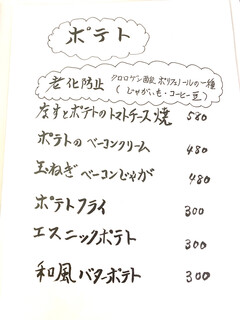 ポテト
老化防止 クロロゲン酸 ポリフェノールの一種
(じゃがいも・コーヒー豆)
なすとポテトのトマトチーズ焼 580
ポテトのベーコンクリーム 480
玉ねぎベーコンじゃが 480
ポテトフライ 300
エスニックポテト 300
和風バターポテト 300